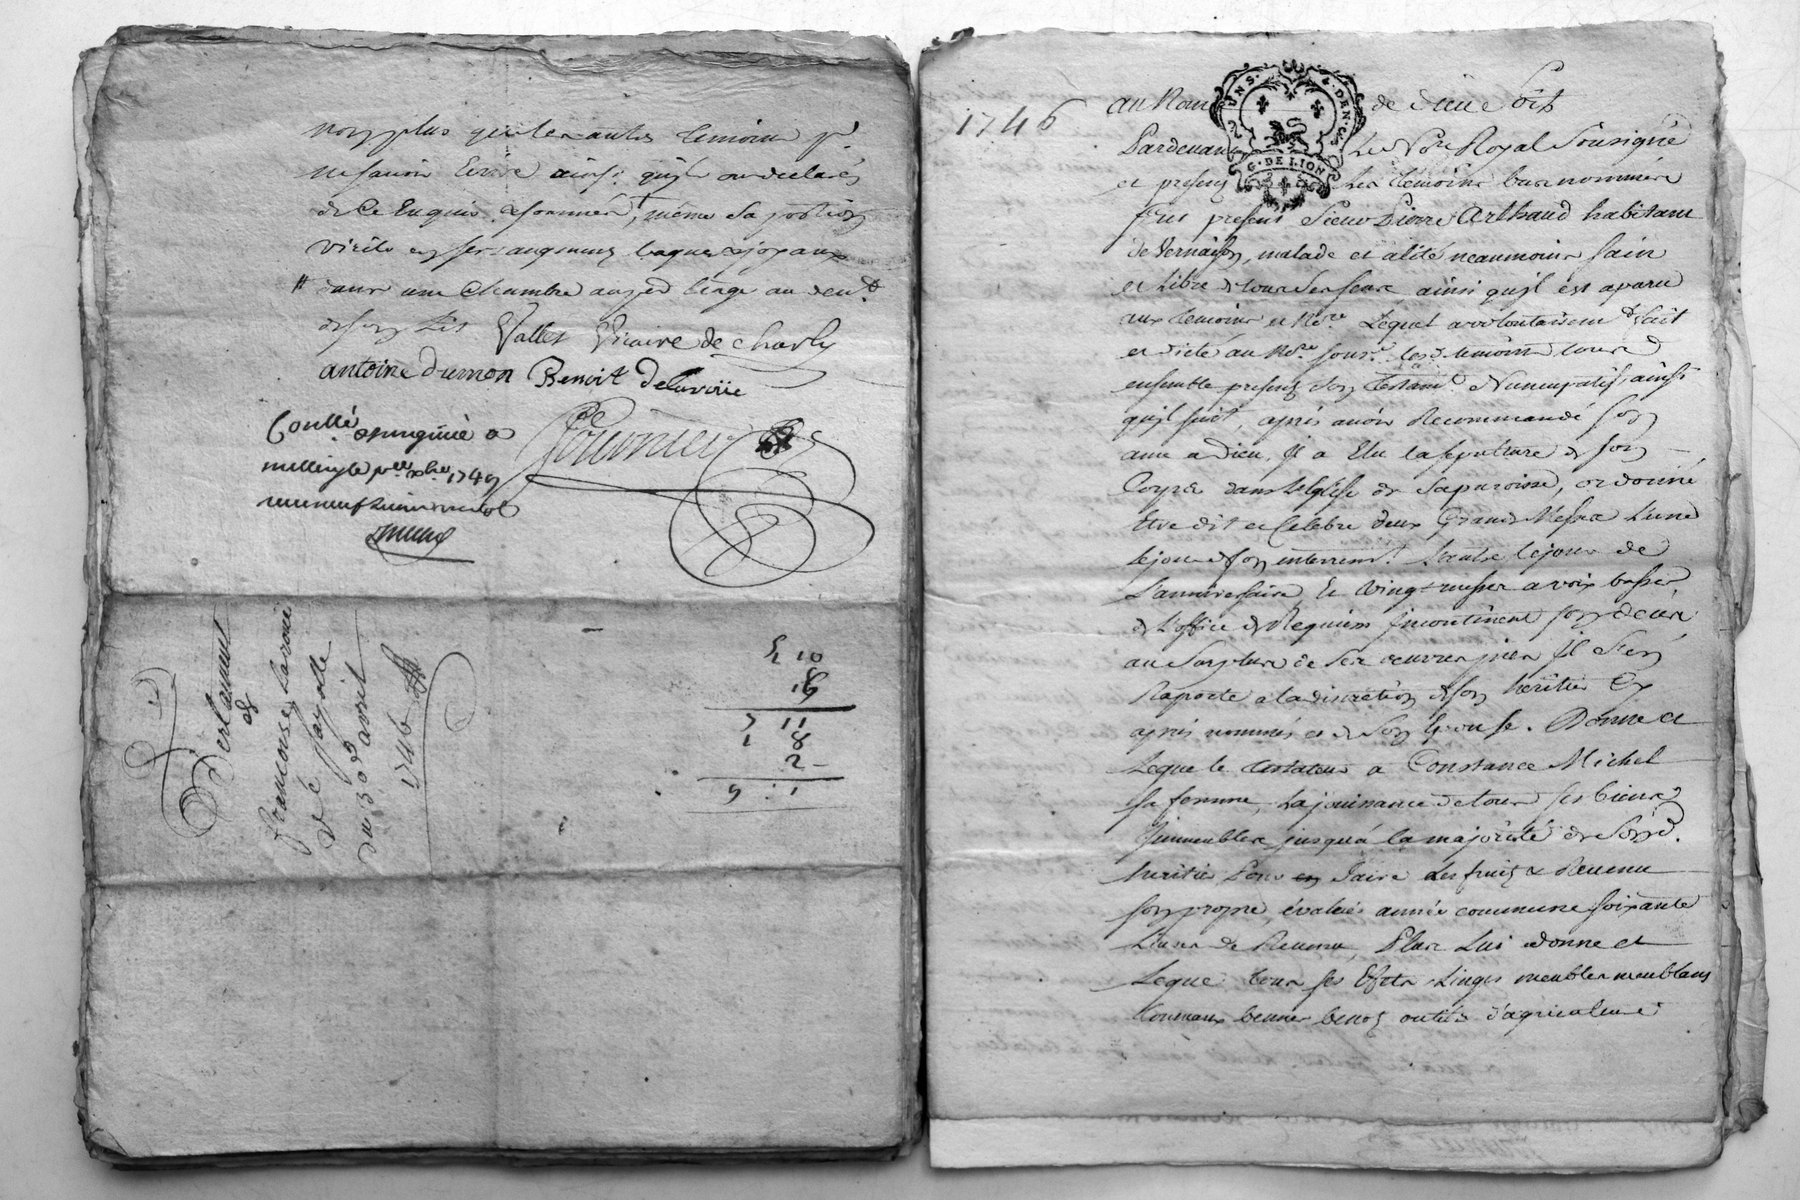 non plus que les autres temoins p.r
ne savoir Ecrire ainsi quils ont declarés
de ce Enquis & sommés, même sa portion
virile en ses augment bagues & joyaux
# dans une chambre au
Vallet Vicaire de charly
antoine dumon Benoit delavoüe
Conllé
a 1749
Fournier
Testament
de
francoise Lavoüe
v.e fayolle
du 30.e avril
1746
5 10
7 11
1 8
2 -
9 1
1746
au Nom de dieu soit
UNS. 4. DEN. C.S
G. DE LION
Pardevant Le No.re Royal Sousigné
et presens Les temoins bas nommés
fut present Sieur Pierre Arthaud habitant
de Vernaison, malade et alité neaumoins sain
et Libre de tous ses sens, ainsi quil est aparu
aux temoins et No.re Lequel a volontairem.t fait
et dicté au No.re sous.é les d. temoins tous
ensemble presens son Testam.t Nuncupatif, ainsi
quil suit, aprés avoir Recommandé son
ame a dieu, Il a Elu la sepulture de son
Corps dans L'Eglise de sa paroisse, ordonné
Etre dit et Celebré deux Grands Messes Lune
le jour de son enterrem.t Lautre le jour de
L'anniversaire & vingt messes a voix basses
de L'office de Requiem Incontinent son decés
au surplus de ses oeuvres pies Il s'en
Raporte a la discretion de son heritier Ex
aprés nommés et de son Epouse. Donne et
Legue le testateur a Constance Michel
sa femme, La jouissance de tous ses biens
Immeubles jusquá la majorité de son d.
heritier Pour en Faire des fruits & Revenu
son propre, évalués année commune soixante
Livres de Revenu, Plus Lui donne et
Legue tous ses Effets Linges meubles meublans
tonneaux bennes benots outils d'agriculture